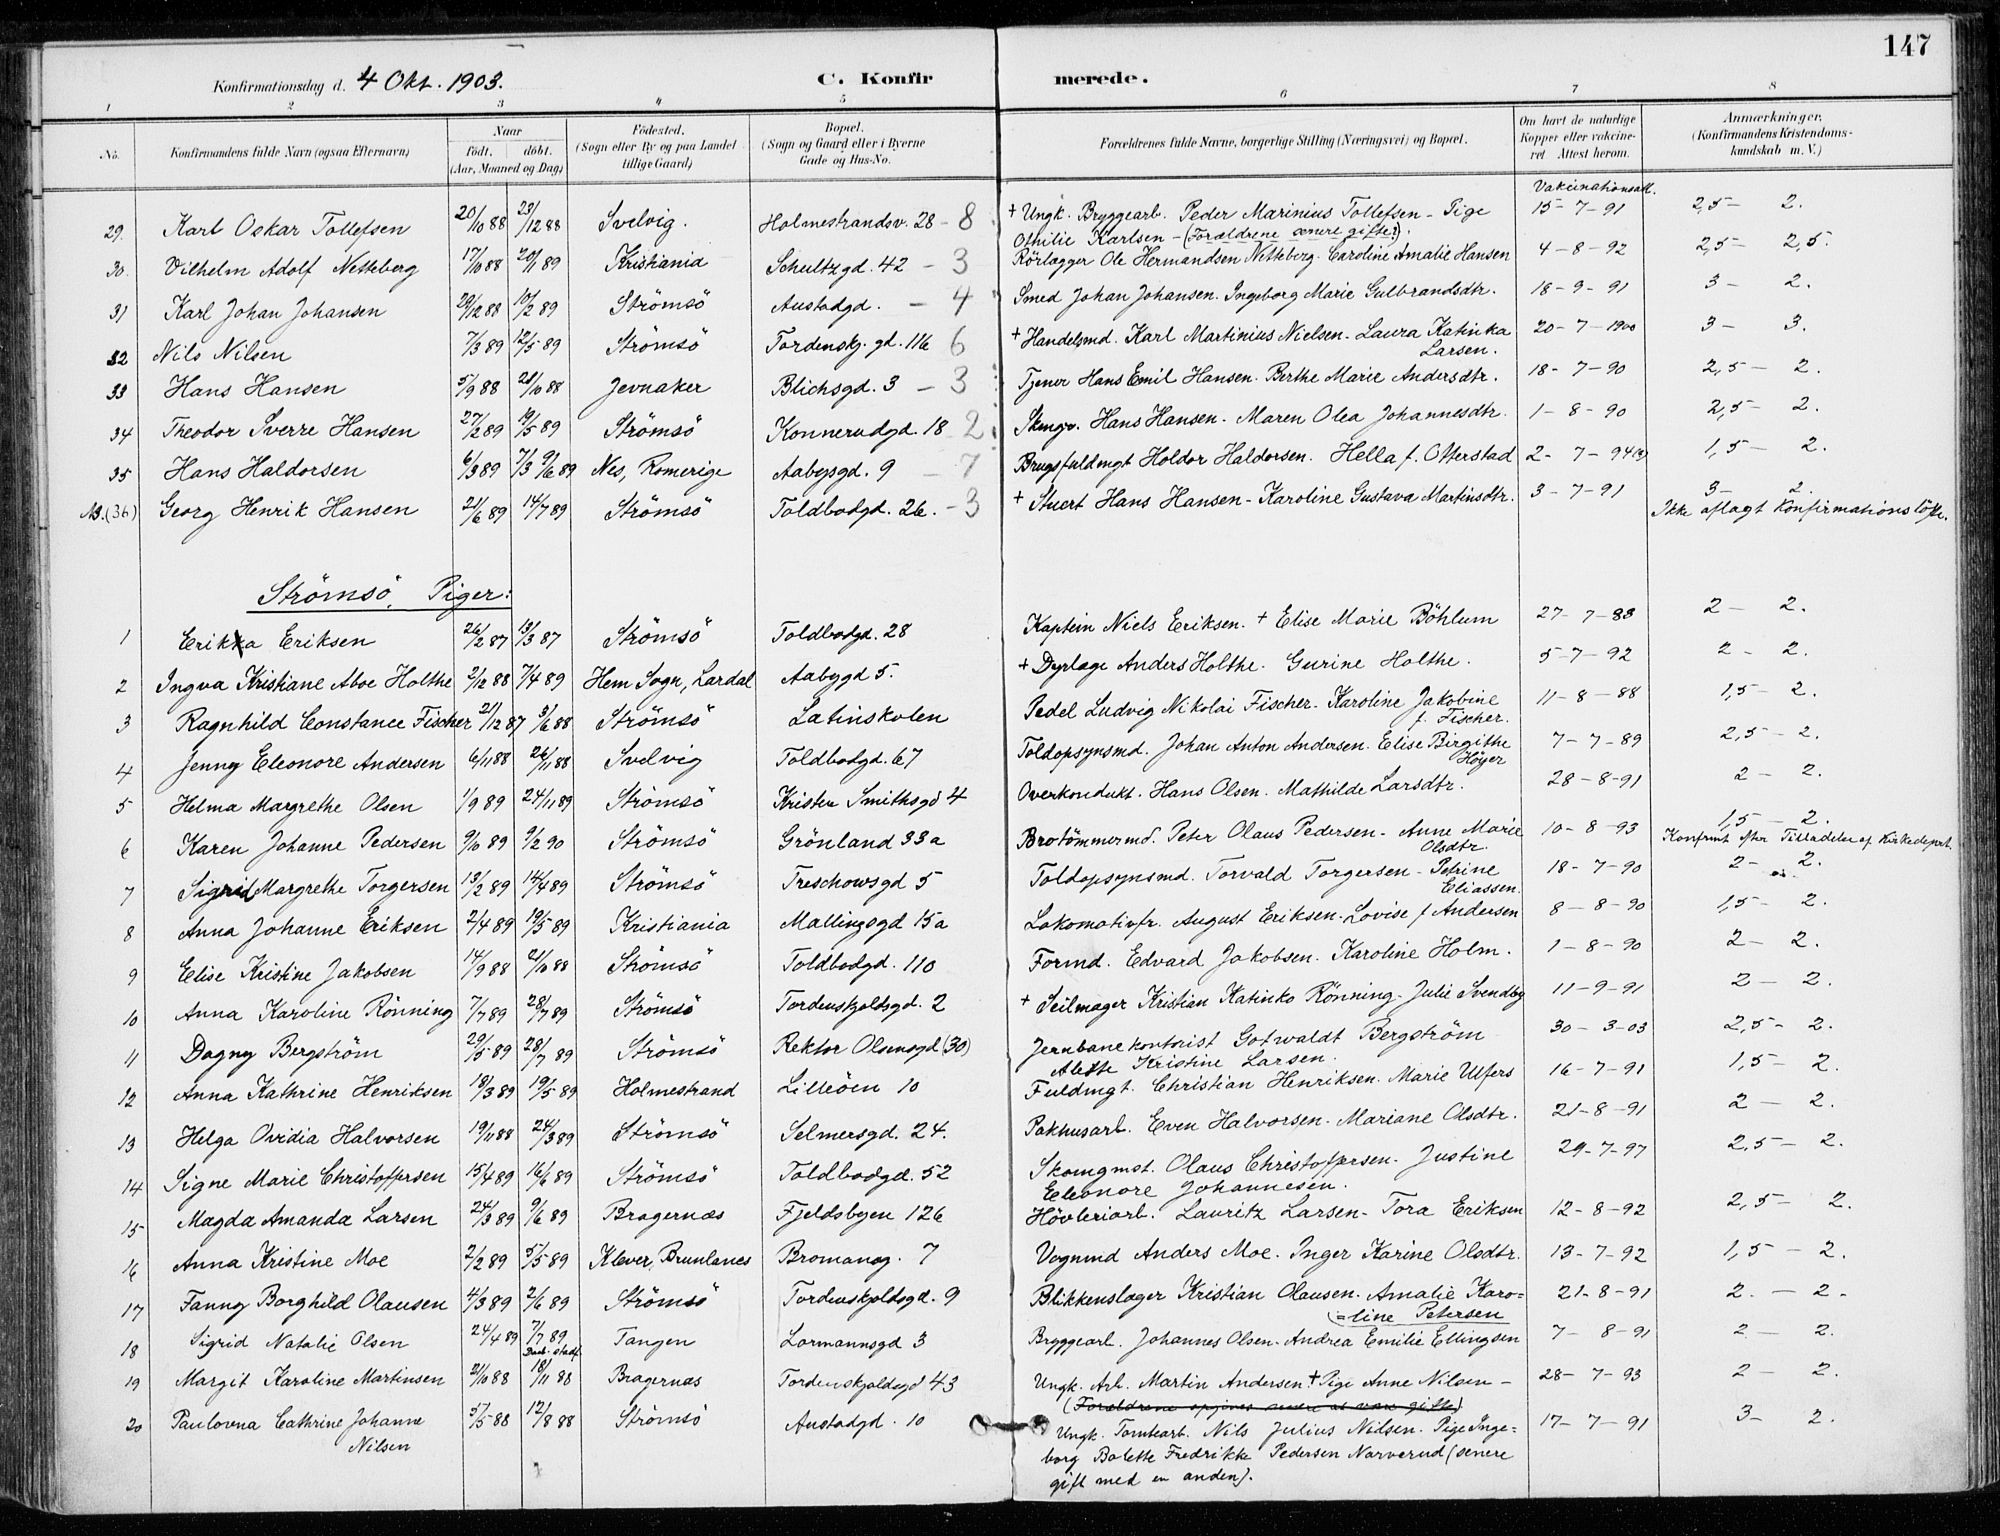 147
Konfirmationsdag d. 4 Okt. 1903. C. Konfirmerede.
1 2 3 4 5 6 7 8
No. Konfirmandens fulde Navn (ogsaa Efternavn) Naar født, døbt. (Aar, Maaned og Dag) Fødested. (Sogn eller By og paa Landet tillige Gaard) Bopæl. (Sogn og Gaard eller i Byerne Gade og Hus-No. Forældrenes fulde Navne, borgerlige Stilling (Næringsvei) og Bopæl. Om havt de naturlige Kopper eller vakcineret. Attest herom. Anmærkninger, (Konfirmandens Kristendomskundskab m. V.)
Vakcinationsatt.
29. Karl Oskar Tollefsen 20/10 88 23/12 88 Svelvig. Holmestrandsv. 28 - 8 + Ungk. Bryggearb. Peder Marinius Tollefsen - Pige 15-7-91 2,5- 2.
Othilie Karlsen - (Forældrene senere gifte).
30. Vilhelm Adolf Netteberg 17/10 88 20/1 89 Kristiania Schultzgd. 42 - 3 Rörlægger Ole Hermandsen Netteberg. Caroline Amalie Hansen 4-8-92 2,5- 2,5.
31 Karl Johan Johansen 29/12 88 10/2 89 Strömsö Austadgd. - 4 Smed Johan Johansen. Ingeborg Marie Gulbrandsdtr. 18-9-91 3- 2.
32 Nils Nilsen 7/3 89 12/5 89 Strömsö Tordenskj. gd. 116 6 + Handelsmd. Karl Martinius Nielsen - Laura Katinka 20-7-1900 3- 3.
Larsen.
33 Hans Hansen 5/9 88 21/10 88 Jevnaker Blichsgd. 3 - 3 Tjener Hans Emil Hansen. Berthe Marie Andersdtr. 18-7-90 2,5- 2.
34 Theodor Sverre Hansen 27/2 89 19/5 89 Strömsö Konnerudgd. 18 2 Hans Hansen - Maren Olea Johannesdtr. 1-8-90 2,5- 2.
35 Hans Haldorsen 6/3 89 7/3 9/6 89 Nes, Romerige Aabygd. 9 - 7 Brugsfuldmgt Holdor Haldorsen. Hella f. Otterstad 2-7-94 1,5- 2.
NB. (36) Georg Henrik Hansen 21/6 89 14/7 89 Strömsö Toldbodgd. 26. - 3 + Stuert Hans Hansen - Karoline Gustava Martinsdtr. 3-7-91 3- 2.
Ikke aflagt Konfirmationslöfte.
Strömsö, Piger:
1 Erikka Eriksen 26/2 87 13/3 87 Strömsö Toldbodgd. 28 Kaptein Niels Eriksen. + Elise Marie Böhlum 27-7-88 2- 2.
2 Ingva Kristiane Aboe Holthe 2/12 88 7/4 89 Hem Sogn, Lardal Aabygd 5. + Dyrlæge Anders Holthe. Gurine Holthe. 5-7-92 2- 2.
3 Ragnhild Constance Fischer 21/12 87 3/6 88 Strömsö Latinskolen Pedel Ludvig Nikolai Fischer. Karoline Jakobine 11-8-88 1,5- 2.
f. Fischer.
4 Jenny Eleonore Andersen 6/11 88 26/11 88 Svelvig Toldbodgd. 67 Toldopsynsmd. Johan Anton Andersen. Elise Birgithe 7-7-89 2,5- 2.
Höyer
5 Helma Margrethe Olsen 1/9 89 24/11 89 Strömsö Krister Smithsgd 4 Overkondukt. Hans Olsen. Mathilde Larsdtr. 28-8-91 2- 2.
6 Karen Johanne Pedersen 9/10 89 9/2 90 Strömsö Grönland 33a Brotömmermd. Peter Olaus Pedersen - Anne Marie 10-8-93 1,5- 2.
Olsdtr. Konfirmt efter Tilladelse af Kirkedeprt.
7 Sigrid Margrethe Torgersen 13/2 89 14/4 89 Strömsö Treschowsgd 5 Toldopsynsmd. Torvald Torgersen - Petrine 18-7-90 2- 2.
Eliassen.
8 Anna Johanne Eriksen 2/4 89 19/5 89 Kristiania Mallingsgd 15a Lokomotivfr. August Eriksen. Lovise f Andersen 8-8-90 1,5- 2.
9 Elise Kristine Jakobsen 14/9 88 21/10 88 Strömsö Toldbodgd. 110 Formd. Edvard Jakobsen. Karoline Holm. 1-8-90 2- 2.
10 Anna Karoline Rönning 7/7 89 28/7 89 Strömsö Tordenskjoldsgd. 2 + Seilmager Kristian Katinko Rönning. Julie Svendby 11-9-91 2- 2.
11 Dagny Bergström 29/5 89 28/7 89 Strömsö Rektor Olsensgd (30) Jernbanekontorist Gotwaldt Bergström 30-3-03 2,5- 2.
Alette Kristine Larsen.
12 Anna Kathrine Henriksen 18/3 89 19/5 89 Holmestrand Lilleöen 10 Fuldmgt. Christian Henriksen. Marie Ulfers 16-7-91 1,5- 2.
13 Helga Ovidia Halvorsen 19/11 88 24/3 89 Strömsö Selmersgd. 24. Pakhusarb. Even Halvorsen. Mariane Olsdtr. 21-8-91 2- 2.
14 Signe Marie Christoffersen 15/4 89 16/6 89 Strömsö Toldbodgd. 52 Skomgmst. Olaus Christoffersen. Justine 29-7-97 2,5- 2.
Eleonore Johannesen.
15 Magda Amanda Larsen 24/3 89 9/6 89 Bragernæs Fjeldsbyen 126 Hövleriarb. Lauritz Larsen - Tora Eriksen 12-8-92 2,5- 2.
16 Anna Kristine Moe 2/2 89 5/5 89 Klever, Brunlanes Bromanag. 7 Vognmd Anders Moe. Inger Karine Olsdtr. 13-7-92 1,5- 2.
17 Fanny Borghild Olausen 4/3 89 2/6 89 Strömsö Tordenskjoldsgd. 9 Blikkenslager Kristian Olausen. Amalie Karo= 21-8-91 2.- 2-
=line Petersen
18 Sigrid Natalie Olsen 24/4 89 7/7 89 Tangen Lormannsgd 3 Bryggearb. Johannes Olsen - Andrea Emilie Ellingsen 7-8-91 2- 2.
Daab. stadf.
19 Margit Karoline Martinsen 2/10 88 18/11 88 Bragernæs Tordenskjoldsgd 43 Ungk. Arb. Martin Andersen. + Pige Anne Nilsen - 28-7-93 2- 2.
(Forældrene opgives senere at være gifte)
20 Paulovna Cathrine Johanne 5/5 88 12/8 88 Strömsö Austadgd. 10 Ungk. Tomtearb. Nils Julius Nidsen. Pige Inge= 17-7-91 3- 2.
Nilsen borg Bolette Fredrikke Pedersen Narverud (senere
gift med en anden).